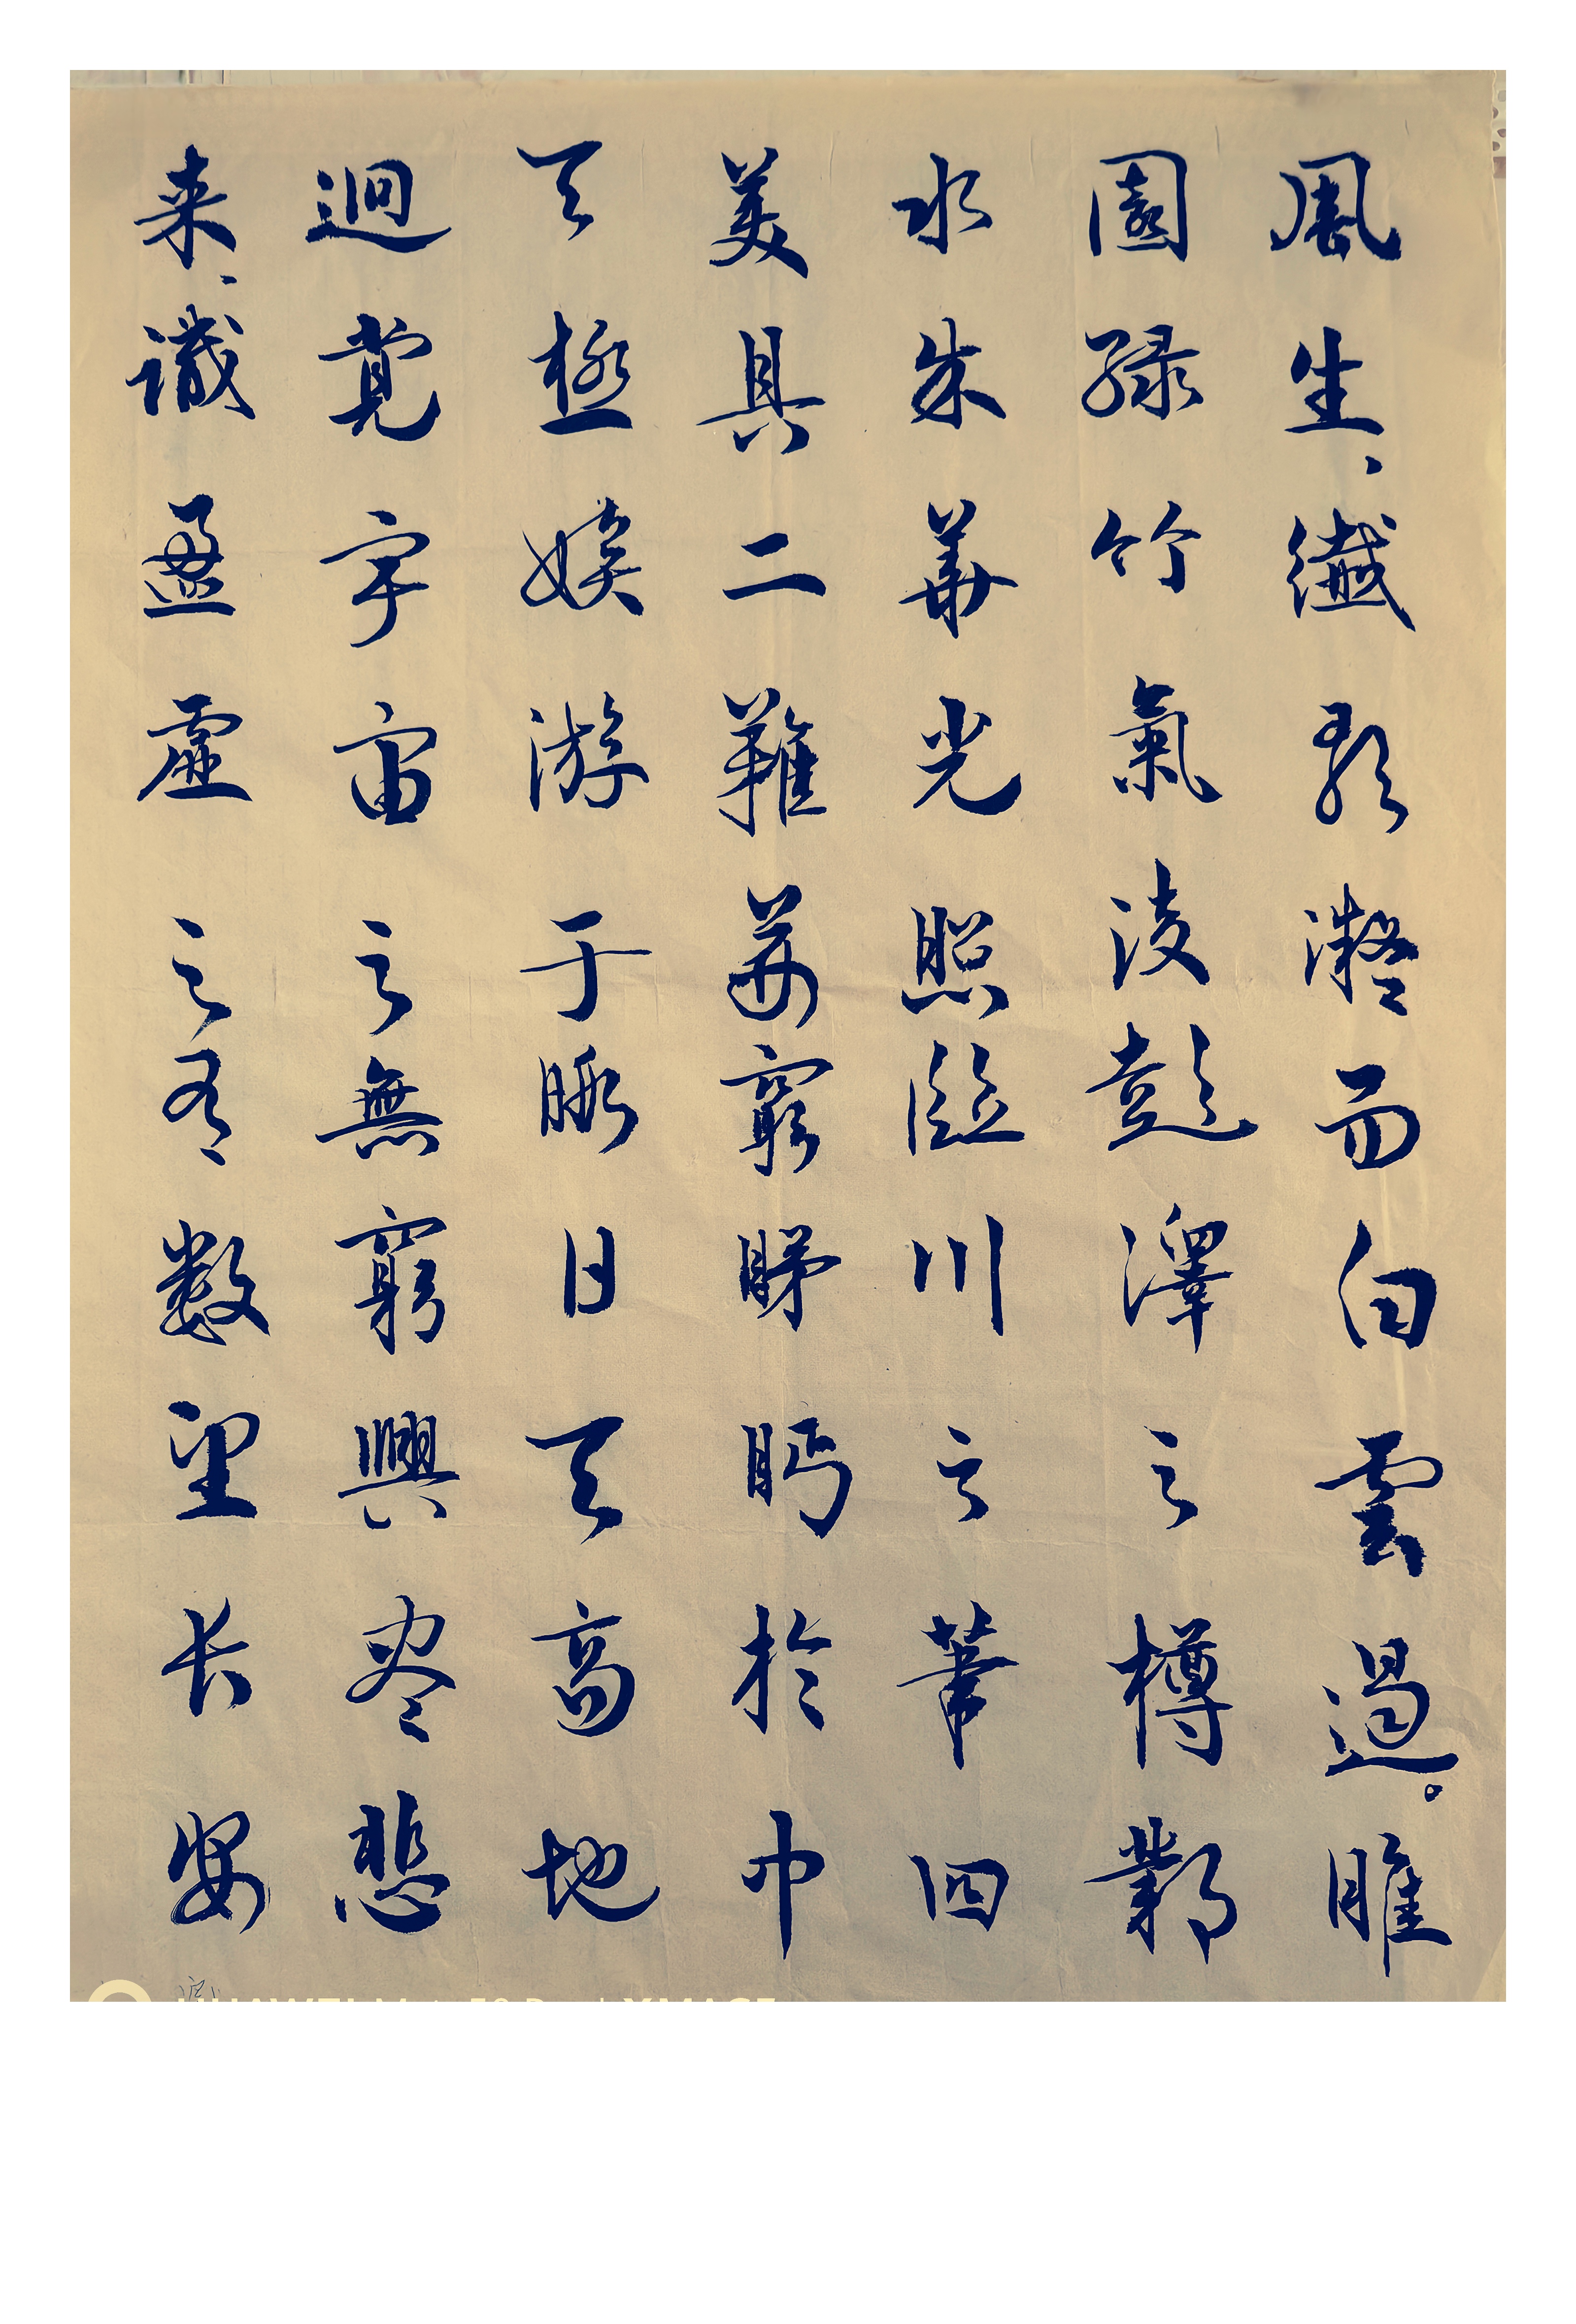 風生、纖歌凝而白雲遏。睢
園緑竹氣凌彭澤之樽鄴
水朱華光照臨川之筆四
美具二難并窮睇眄於中
天極娱游于暇日天高地
逈覺宇宙之無窮興盡悲
来、識盈虚之有数望长安